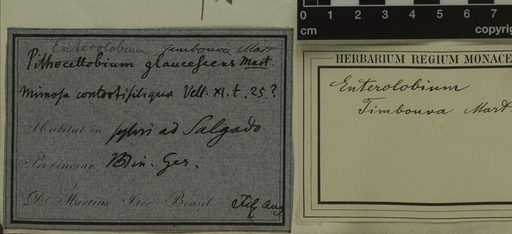 Enterolobium Timbouva Mart
Pithecellobium glaucescens Mart.
Mimosa contortisiliqua Vell. XI. t. 25?
Habitat in sylvis ad Salgado
Provinciae Min. Ger.
Dr. Martius Iter Brasil. Aug
0
cm
copyrig
HERBARIUM REGIUM MONACE
Enterolobium
Timbouva Mart